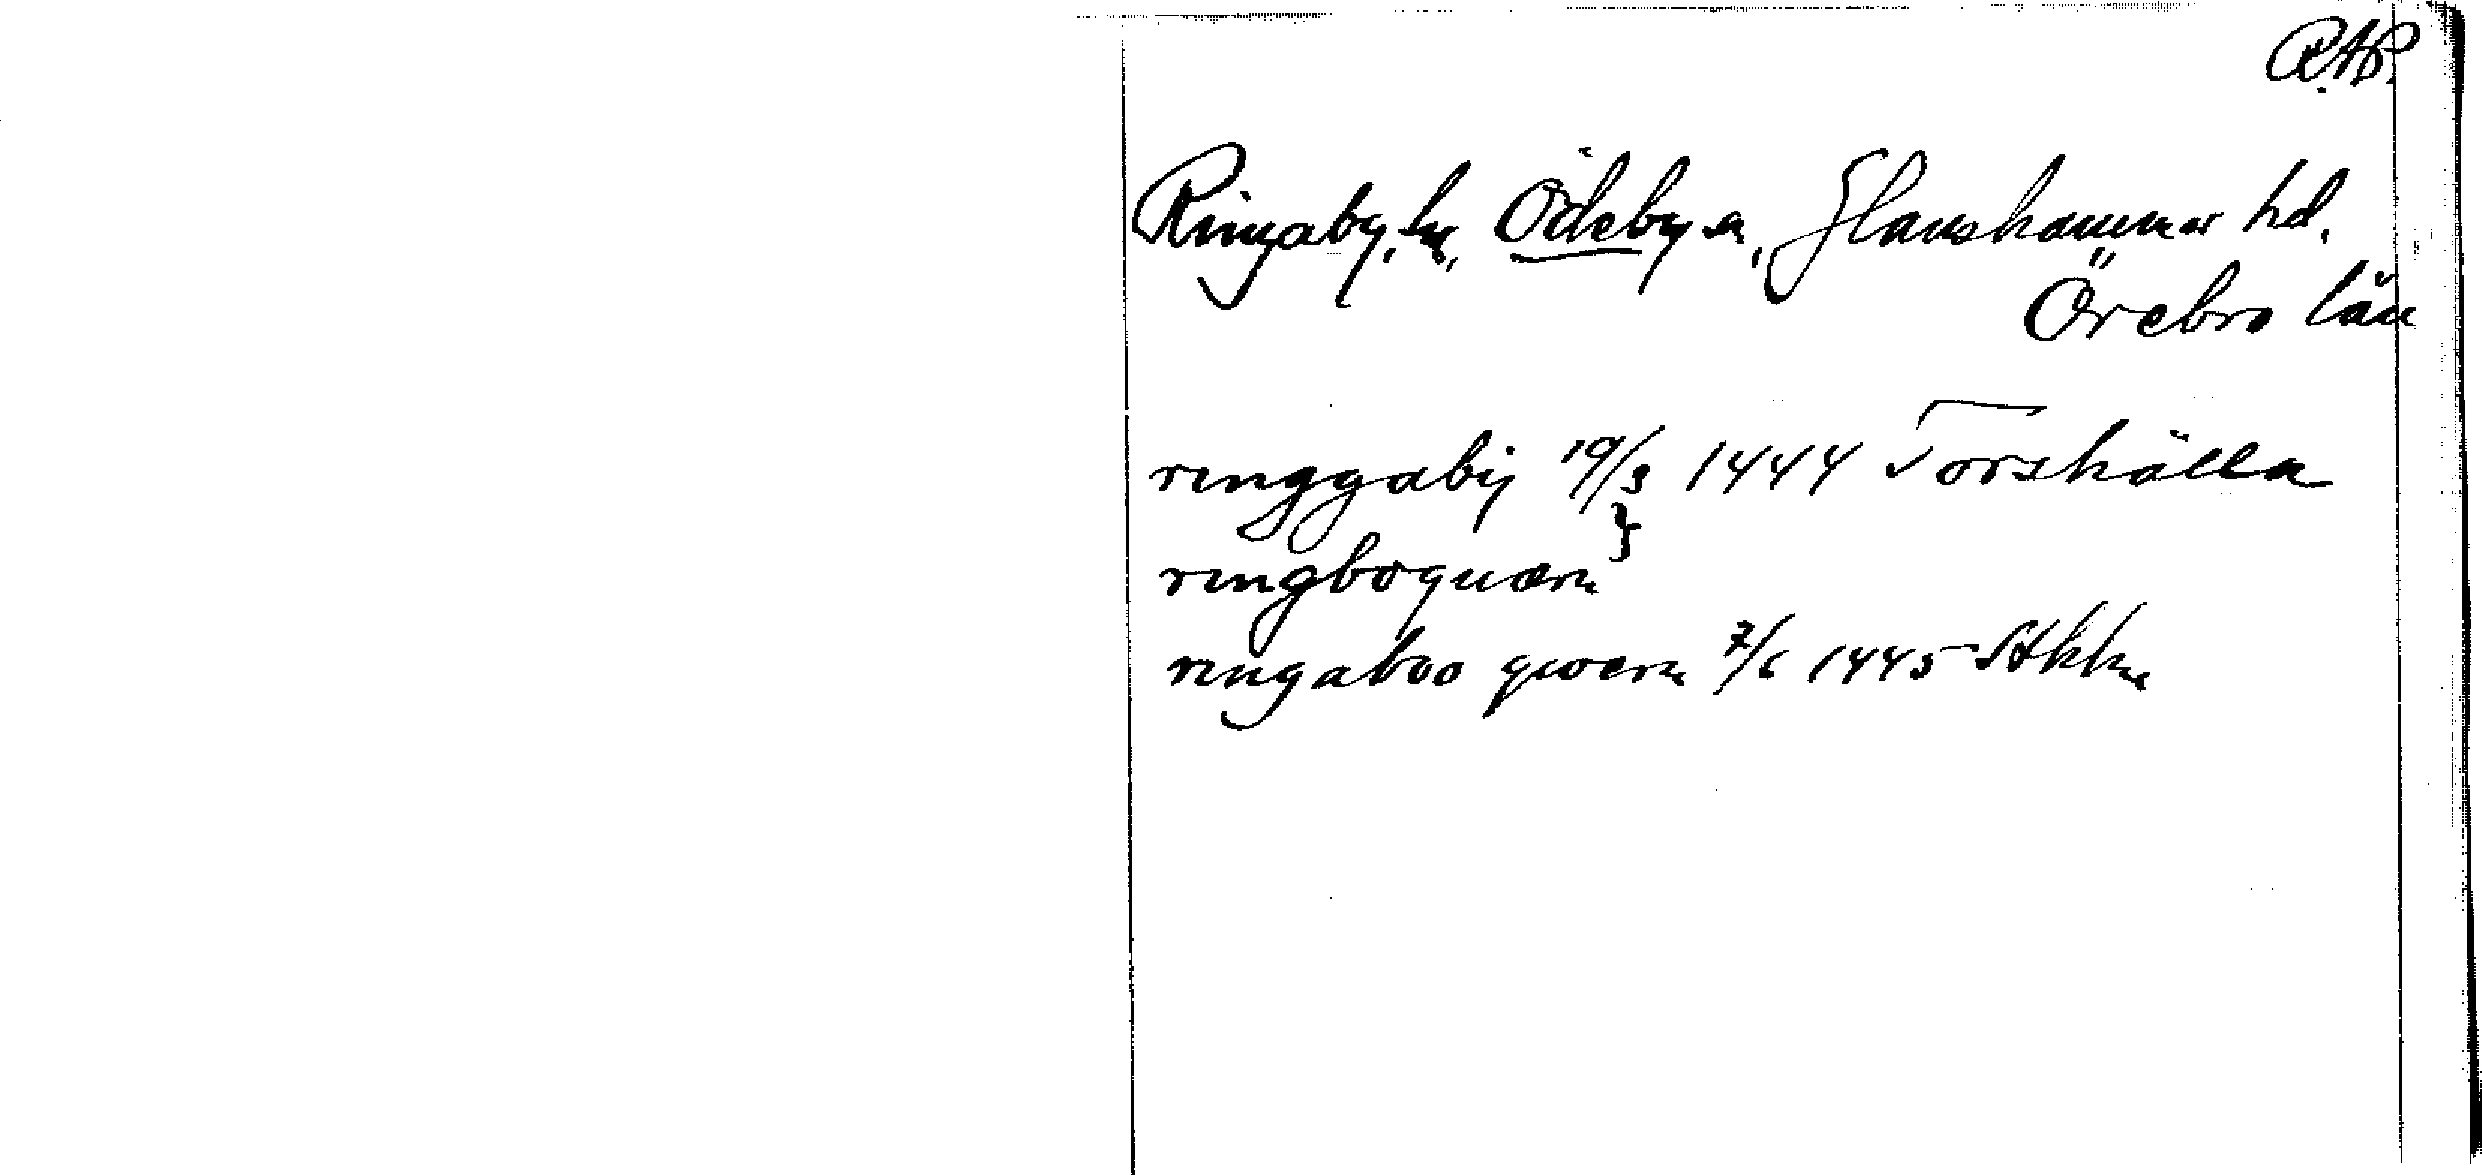 RAP.
Ringaby, by, Ödeby sn, Glanshammar hd.
Örebro län
ringgabÿ 19/3 1444 Torshälla
ringboquærn
ringaboo qwærn 7/6 1445 Sthlm